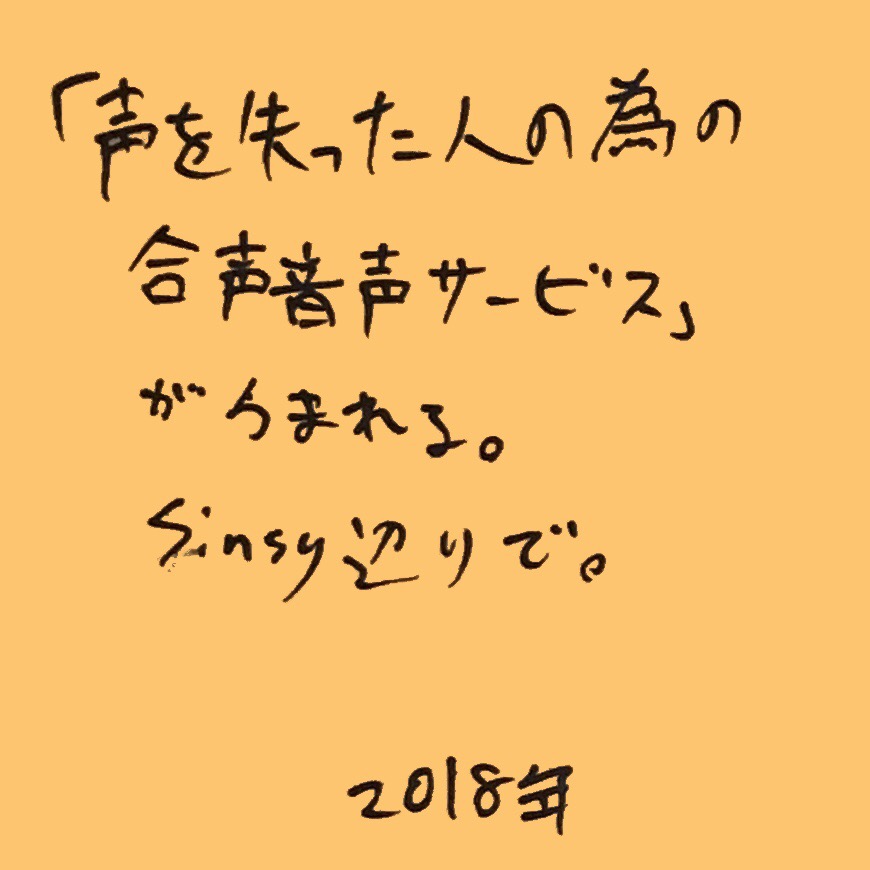 「声を失った人の為の
合声音声サービス」
がうまれる。
Sinsy辺りで。
2018年